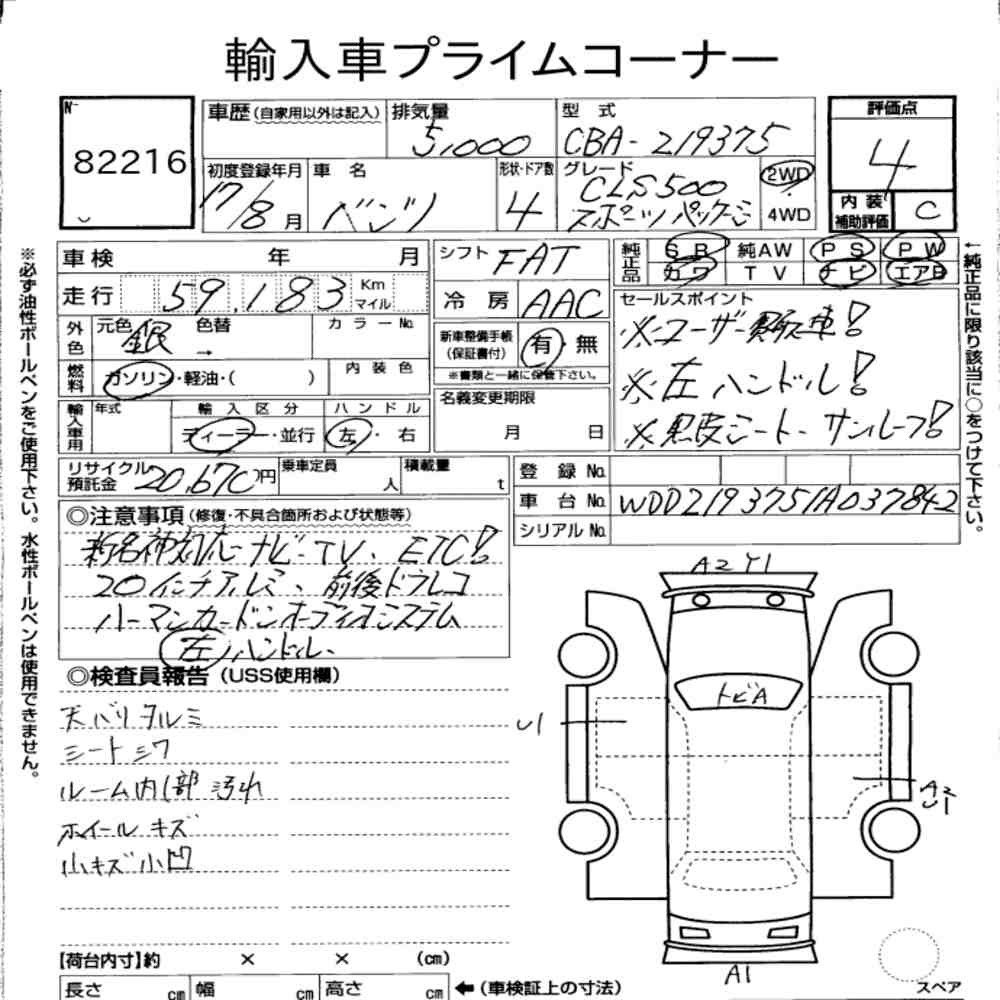 輸入車プライムコーナー
№ 82216
車歴(自家用以外は記入) 排気量 5,000 型式 CBA-219375
初度登録年月 17/8月 車名 ベンツ 形状・ドア数 4 グレード CLS500 スポーツパッケージ 2WD 4WD
評価点 4
内装補助評価 C
車検 年 月
走行 59,183 Km マイル
外色 元色 銀 色替 → カラーNo.
燃料 ガソリン・軽油・( ) 内装色
輸入車用 年式 輸入区分 ディーラー・並行 ハンドル 左・右
シフト FAT
冷房 AAC
新車整備手帳(保証書付) 有・無
※書類と一緒に保管下さい。
名義変更期限 月 日
純正品 SR 純AW PS PW
カワ TV ナビ エアB
セールスポイント
※ユーザー買取車!
※左ハンドル!
※黒皮シート・サンルーフ!
リサイクル預託金 20,670円 乗車定員 人 積載量 t
登録No.
車台No. WDD2193751A037842
シリアルNo.
◎注意事項(修復・不具合箇所および状態等)
ナビ・TV、ETC!
20インチアルミ、前後ドラレコ
ハーマンカードンオーディオシステム
左ハンドル、
◎検査員報告(USS使用欄)
天バリタルミ
シートシワ
ルーム内部汚れ
ホイールキズ
小キズ小凹
A2 Y1
トビA
U1
A2
U1
A1
スペア
【荷台内寸】約 × × (cm)
長さ cm 幅 cm 高さ cm ←(車検証上の寸法)
※必ず油性ボールペンをご使用下さい。水性ボールペンは使用できません。
←純正品に限り該当に○をつけて下さい。